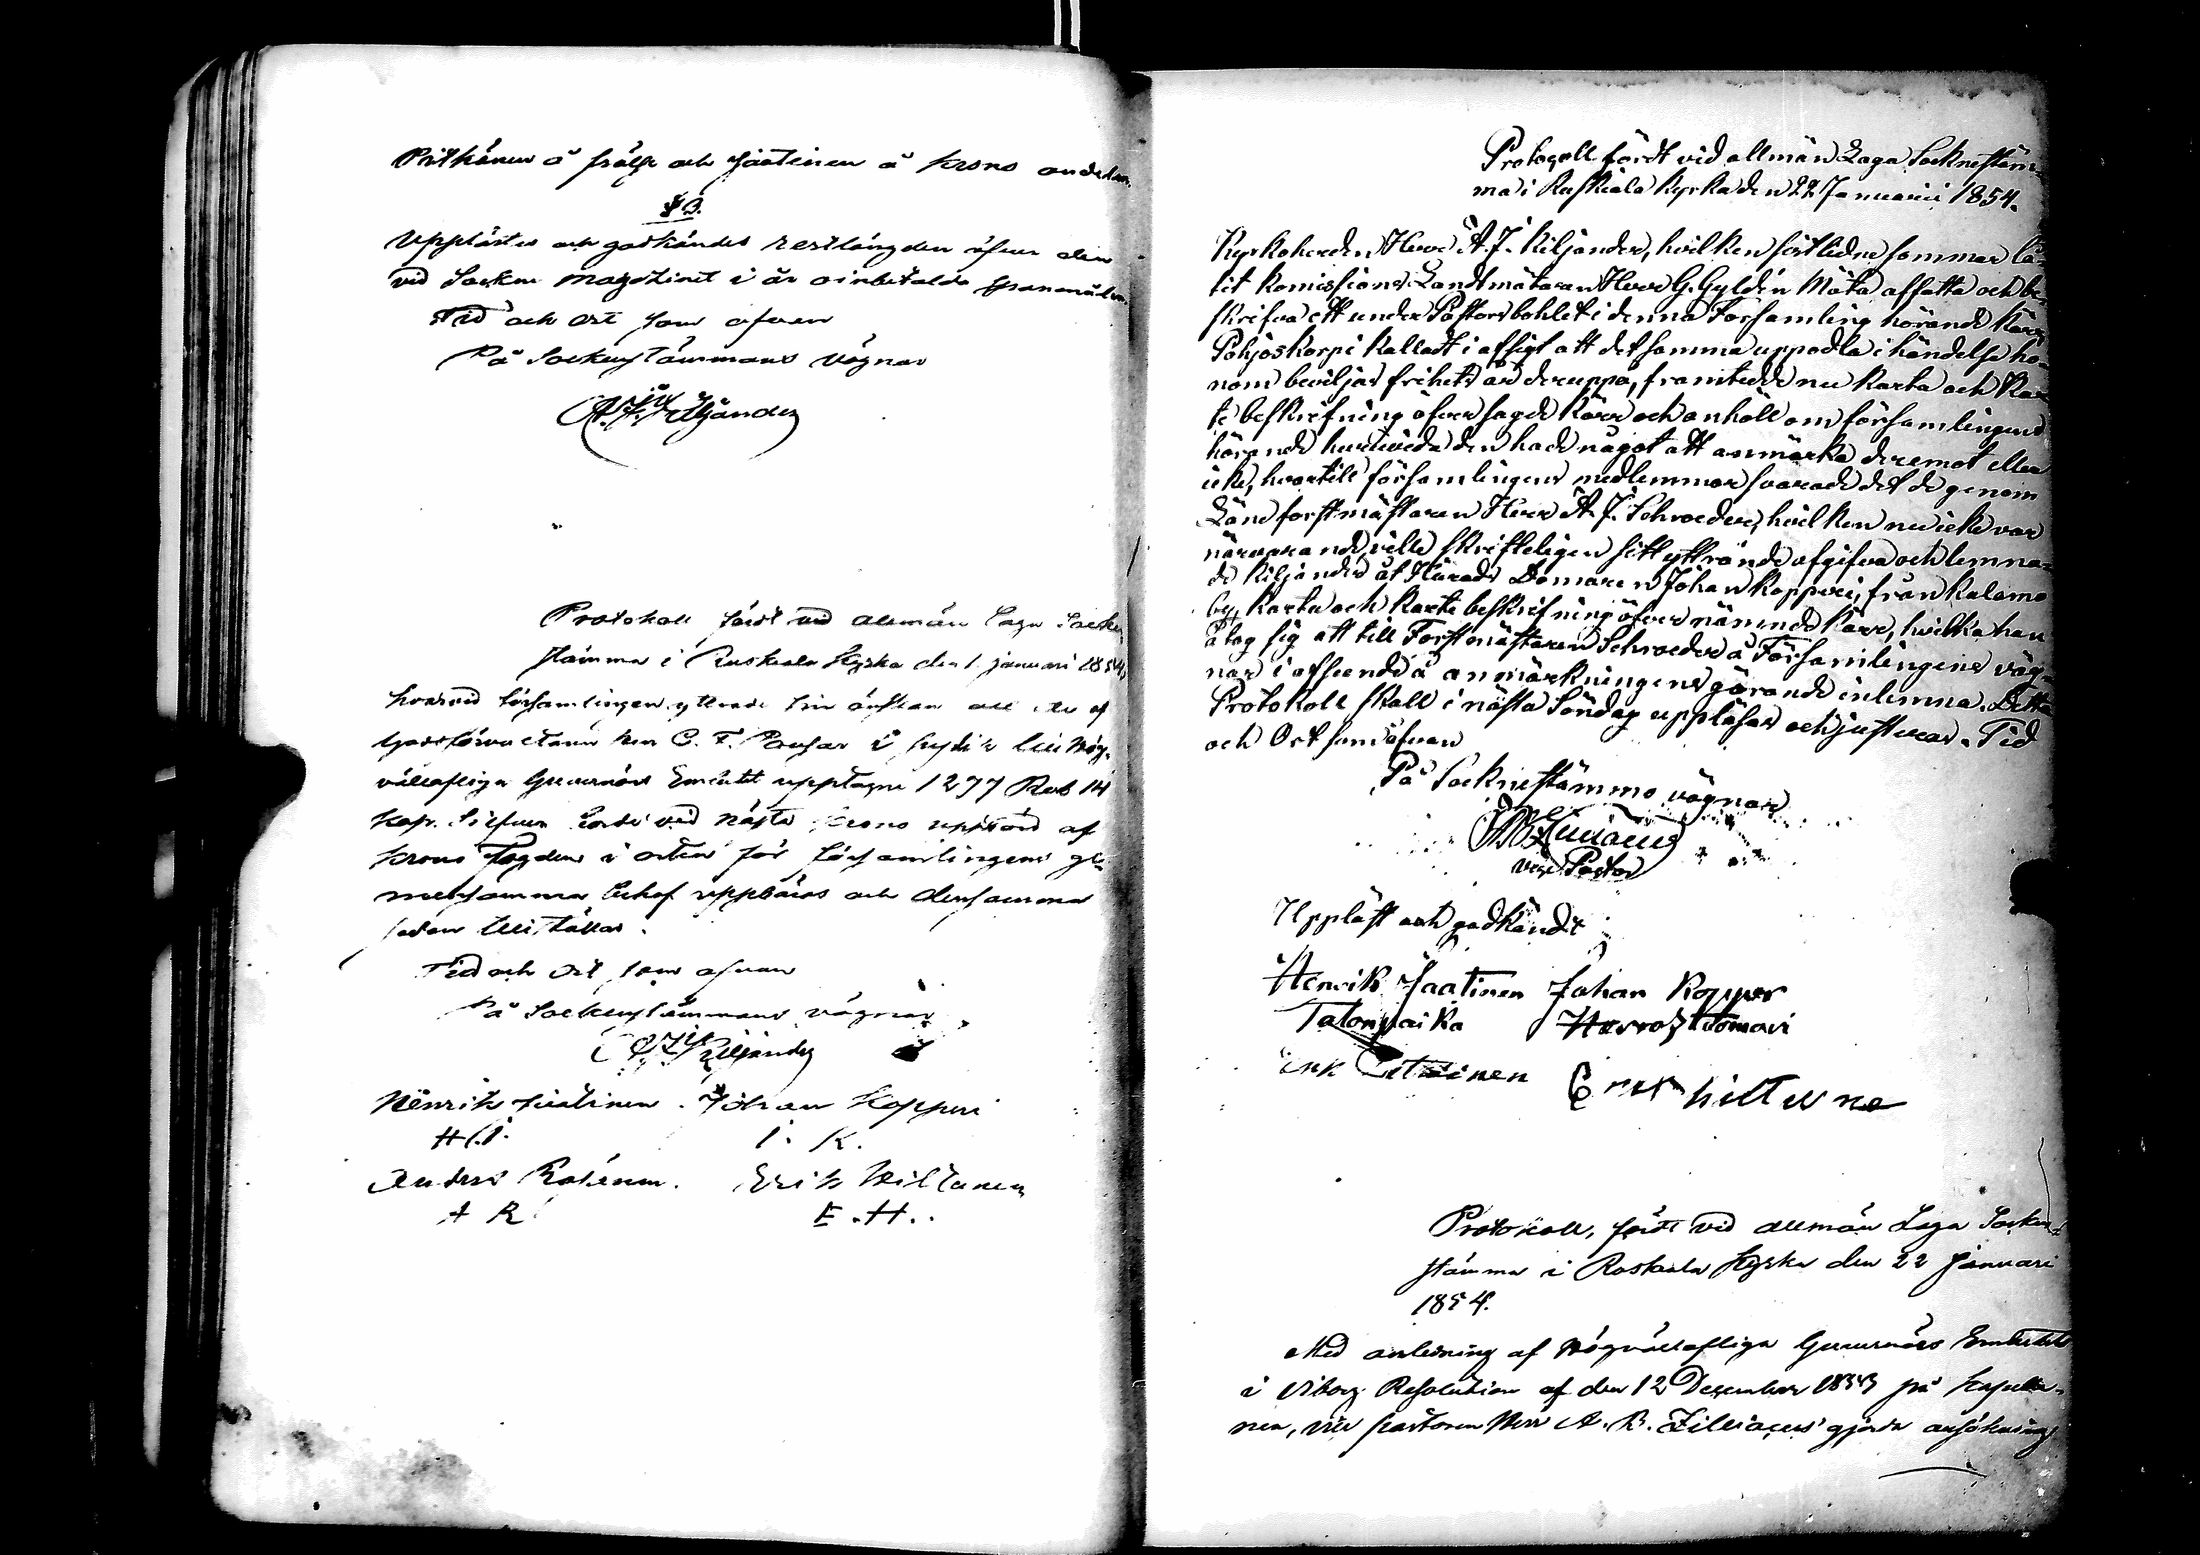 Pitkänen å frälse och Jaatinen å krono andelen.
§ 3.
Upplästes och godkändes restlängden öfver den
vid Socken magazinet i år oinbetalda spanmålen.
Tid och ort som ofvan
På Sockenstämmans vägnar
A. J. Kiljander
Protokoll fördt vid allmän Laga Socken
stämma i Ruskeala Kyrka den 1 januari 1854,
hvarvid församlingen yttrade sin önskan att de af
Godsförvaltaren Herr C. F. till Hög-
välloflige Guvernörs Embetet upptagne 1277 Rub 14
kop. Silfver borde vid nästa krono uppbörd af
krono Fogden i orten för församlingens ge-
mensamma behof uppbäras och densamma
sedan tillställas.
Tid och Ort som ofvan
På Sockenstämmans vägnar
A. J. Kiljander
Henrik Jaatinen. Johan Kopperi
H. J. I. K.
Anders Rotinen. Erik Hiltunen
A R E. H.
Protocoll fördt vid allmän Laga Socknestäm-
ma i Ruskiala Kyrka den 22 Januarii 1854.
Kyrkoherden Herr A. J. Kiljander, hvilken sistlidne sommar lå-
tit Komissions Landtmätaren Herr G. Gyldén Mäta affatta och be-
skrifva ett under Pastors bohlet i denna Församling hörande Kärr
Pohjoskorpi kalladt i afsigt att detsamma uppodla i händelse ho-
nom beviljas frihets år deruppå, framtedde nu Karta och Kar-
te beskrifning öfver sagde Kärr och anhöll om församlingens
hörande huruvida den hade något att anmärka deremot eller
icke, hvartill församlingens medlemmar svarade det de genom
Läns forstmästaren Herr A. J. Schroeder, hvilken nu icke var
närvarande, ville skrifteligen sitt yttrande afgifva och lemna-
de Kiljander åt Härads Domaren Johan Kopperi, från Kalamo
by, Karta och Karte beskrifning öfver nämnde Kärr, hvilka han
åtog sig att till Forstmästaren Schroeder å Församlingens väg-
nar i afseende å anmärkningens görande inlemna. Detta
Protokoll skall i nästa Söndag uppläsas och justeras. Tid
och Ort som ofvan
På Socknestämmo vägnar
A B Zilliacus
vice Pastor
Uppläst och godkändt
Henrik Jaatinen Johan Kopper
Talonpoika Herrastuomari
Erik Erik hiltune
Protokoll, fördt vid allmän Laga Socken-
stämma i Ruskeala Kyrka den 22 Januari
1854.
Med anledning af Högvälloflige Guvernörs Embetets
i Viborg Resolution af den 12 December 1853 på kapella-
nen, vice pastoren Herr A. B. Zilliacus' gjorde ansökning